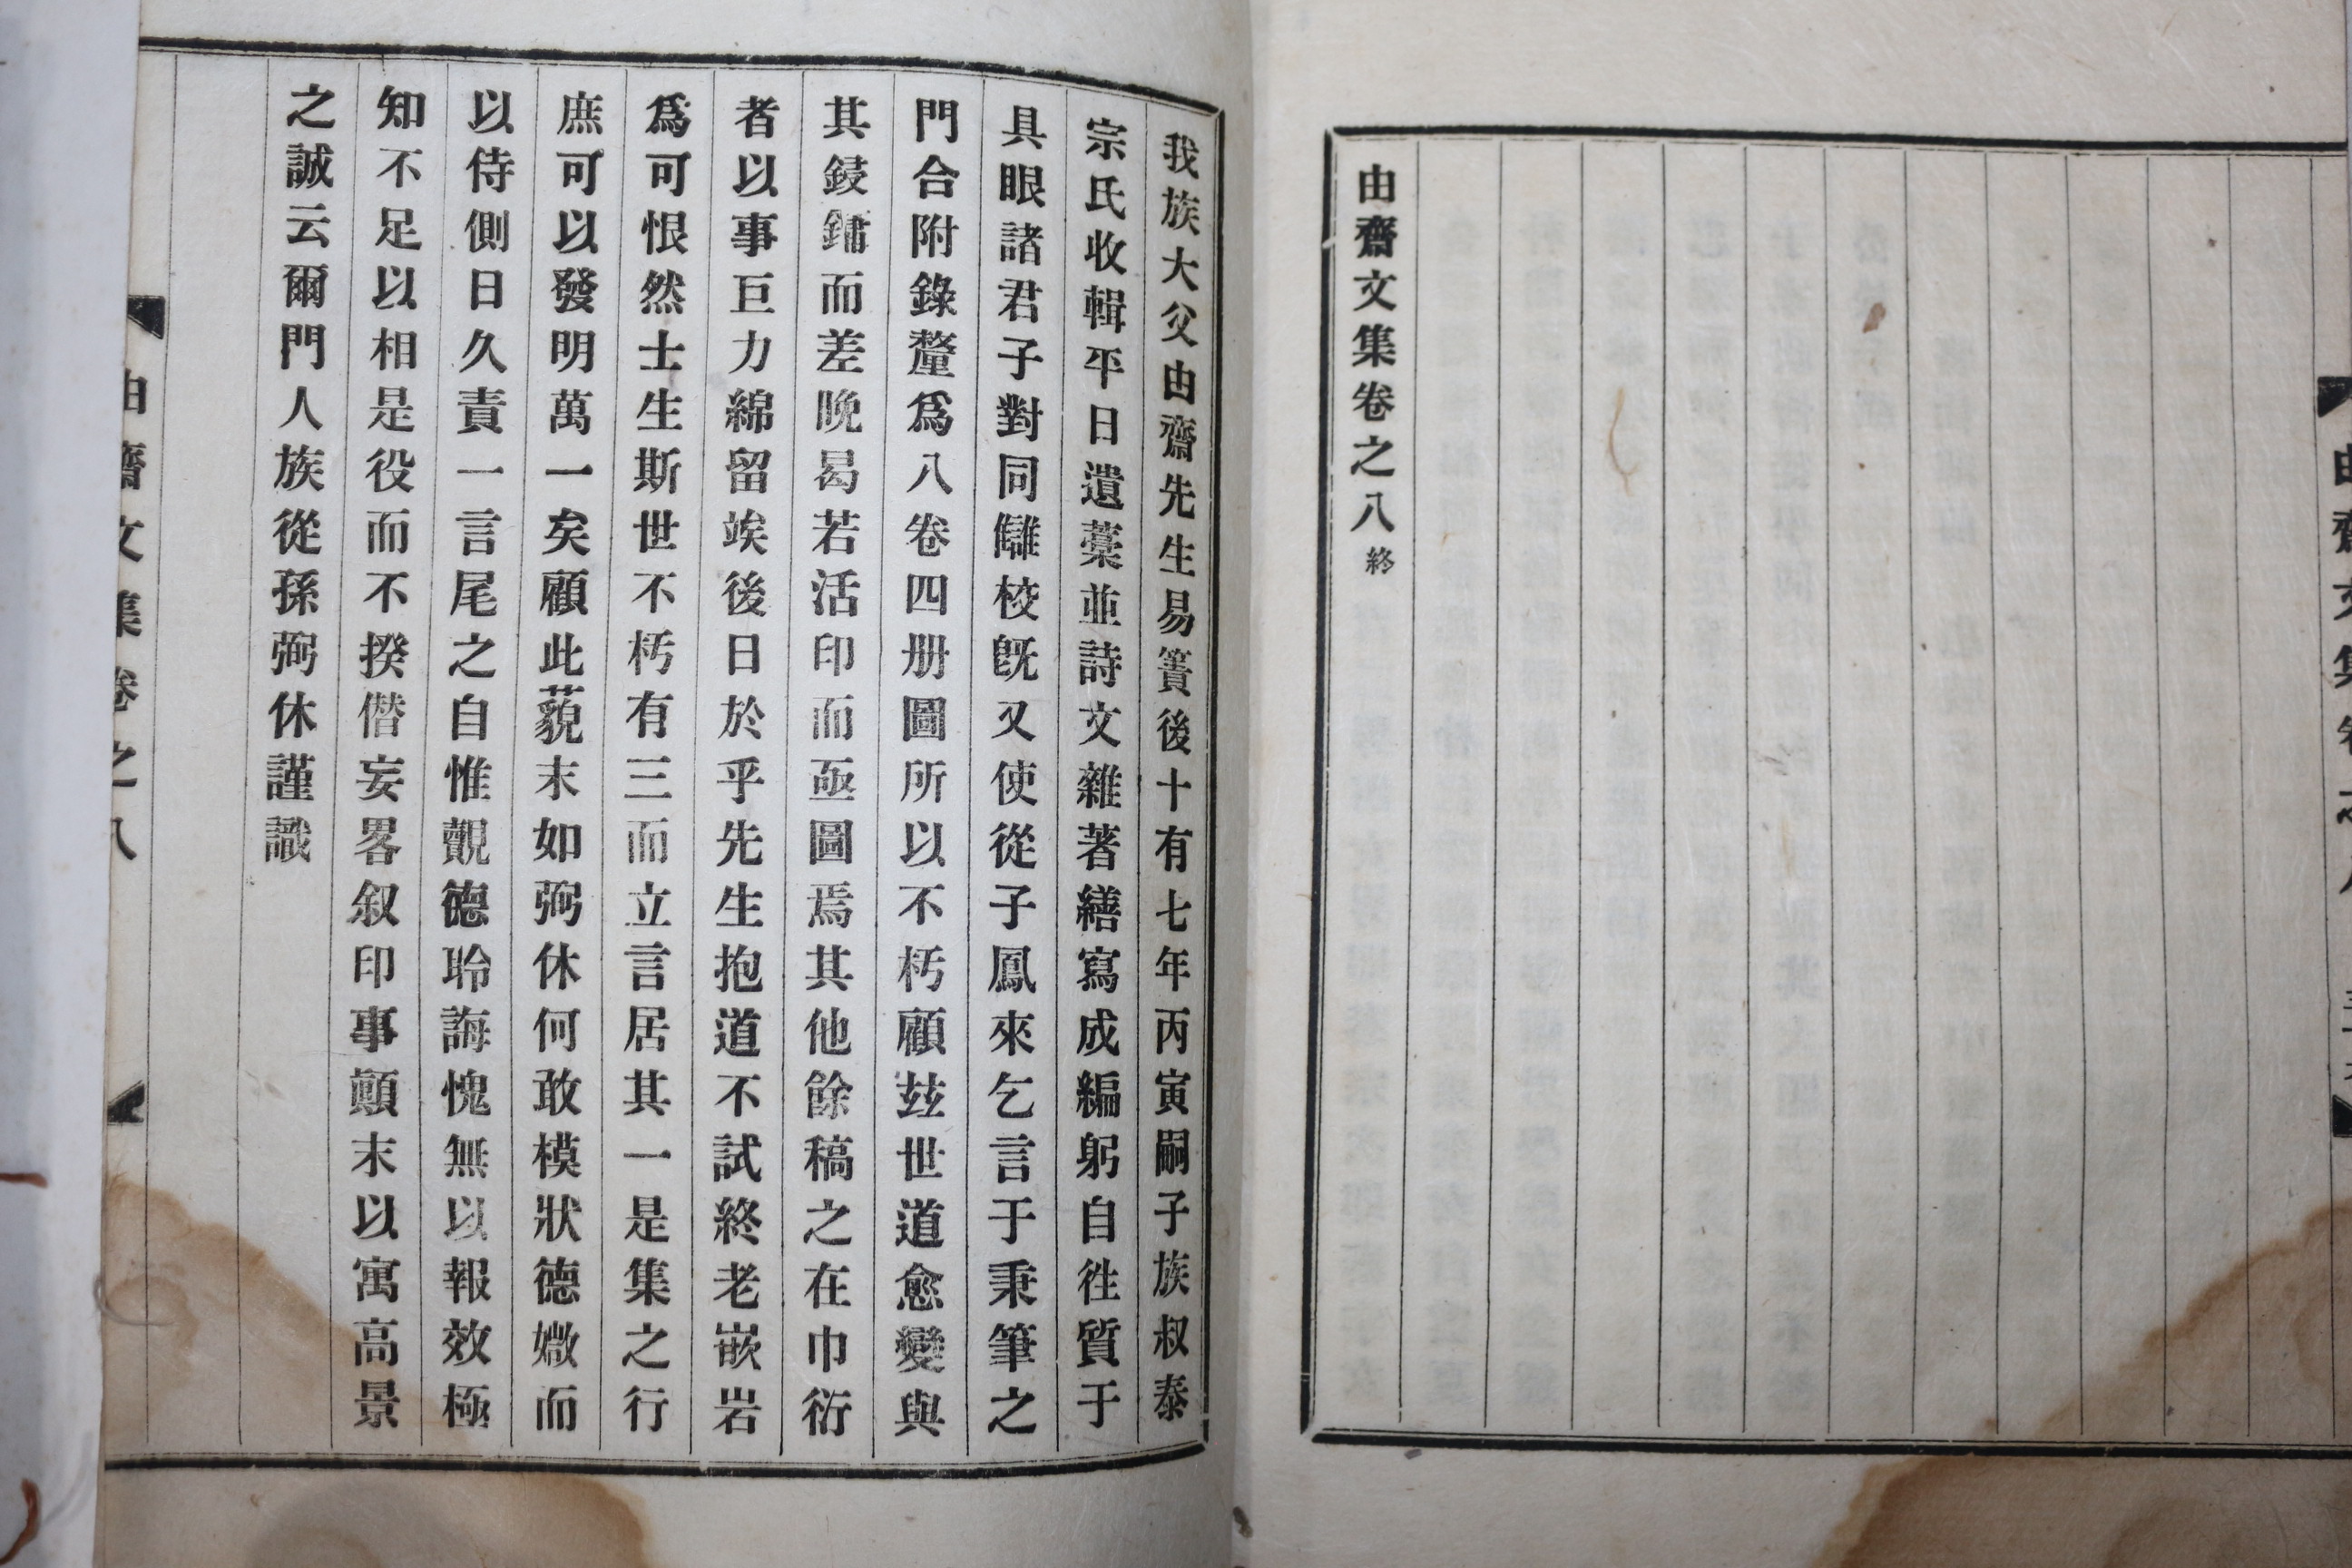 由齋文集卷之八終
我族大父由齋先生易簀後十有七年丙寅嗣子族叔泰
宗氏收輯平日遺藁並詩文雜著繕寫成編躬自徃質于
具眼諸君子對同讎校旣又使從子鳳來乞言于秉筆之
門合附錄釐爲八卷四册圖所以不朽顧玆世道愈變與
其鋟鏽而差晩曷若活印而亟圖焉其他餘稿之在巾衍
者以事巨力綿留竢後日於乎先生抱道不試終老嵌岩
爲可恨然士生斯世不朽有三而立言居其一是集之行
庶可以發明萬一矣顧此藐末如弼休何敢模狀德媺而
以侍側日久責一言尾之自惟覿德聆誨愧無以報效極
知不足以相是役而不揆僭妄畧叙印事顚末以寓高景
之誠云爾門人族從孫弼休謹識
由齋文集卷之八
由齋文集卷之八